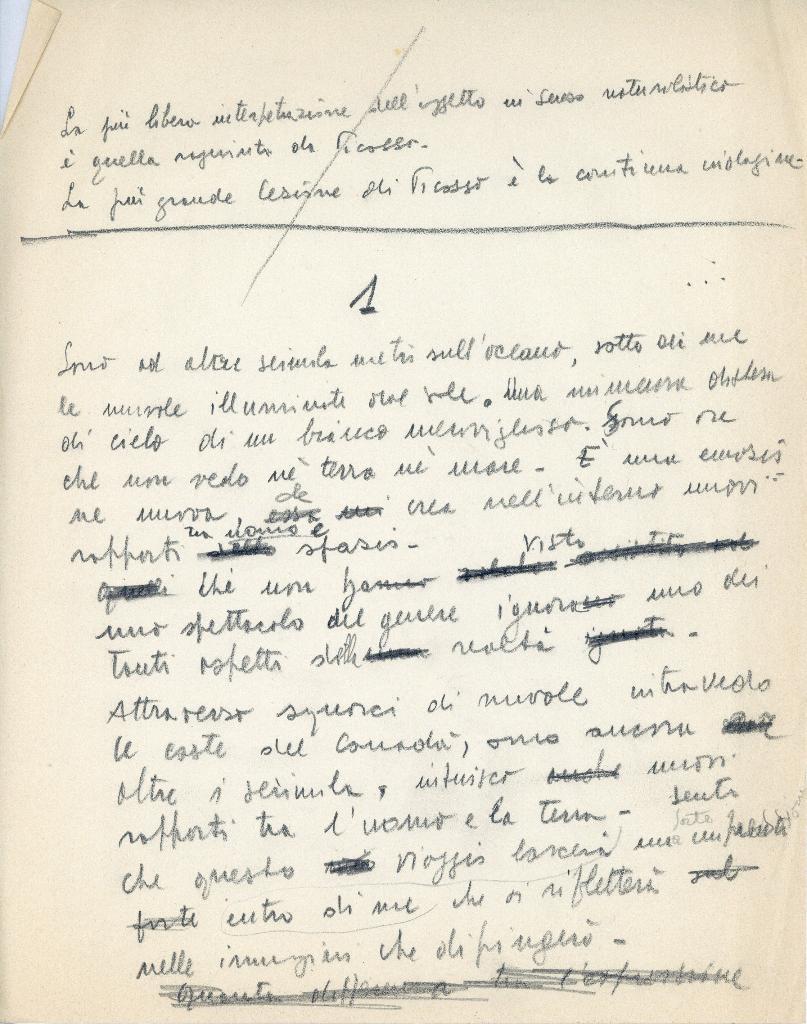 La più libera interpetrazione dell'oggetto in senso naturalistico
è quella raggiunta da Picasso.
La più grande lezione di Picasso è la continua indagine.
1
Sono ad oltre seimila metri sull'oceano, sotto di me
le nuvole illuminate dal sole. Una immensa distesa
di cielo di un bianco meraviglioso. Sono ore
che non vedo nè terra nè mare - È una emozio
ne nuova, che crea nell'interno nuovi
rapporti tra uomo e spazio -
che non visto
uno spettacolo del genere ignora uno dei
tanti aspetti della realtà -
Attraverso squarci di nuvole intravedo
le coste del Canadà, sono ancora
oltre i seimila, intuisco nuovi
rapporti tra l'uomo e la terra - sento
che questo viaggio lascerà una
forte entro di me che si rifletterà
nelle immagini che dipingerò -
quanta differenza tra l'espressione